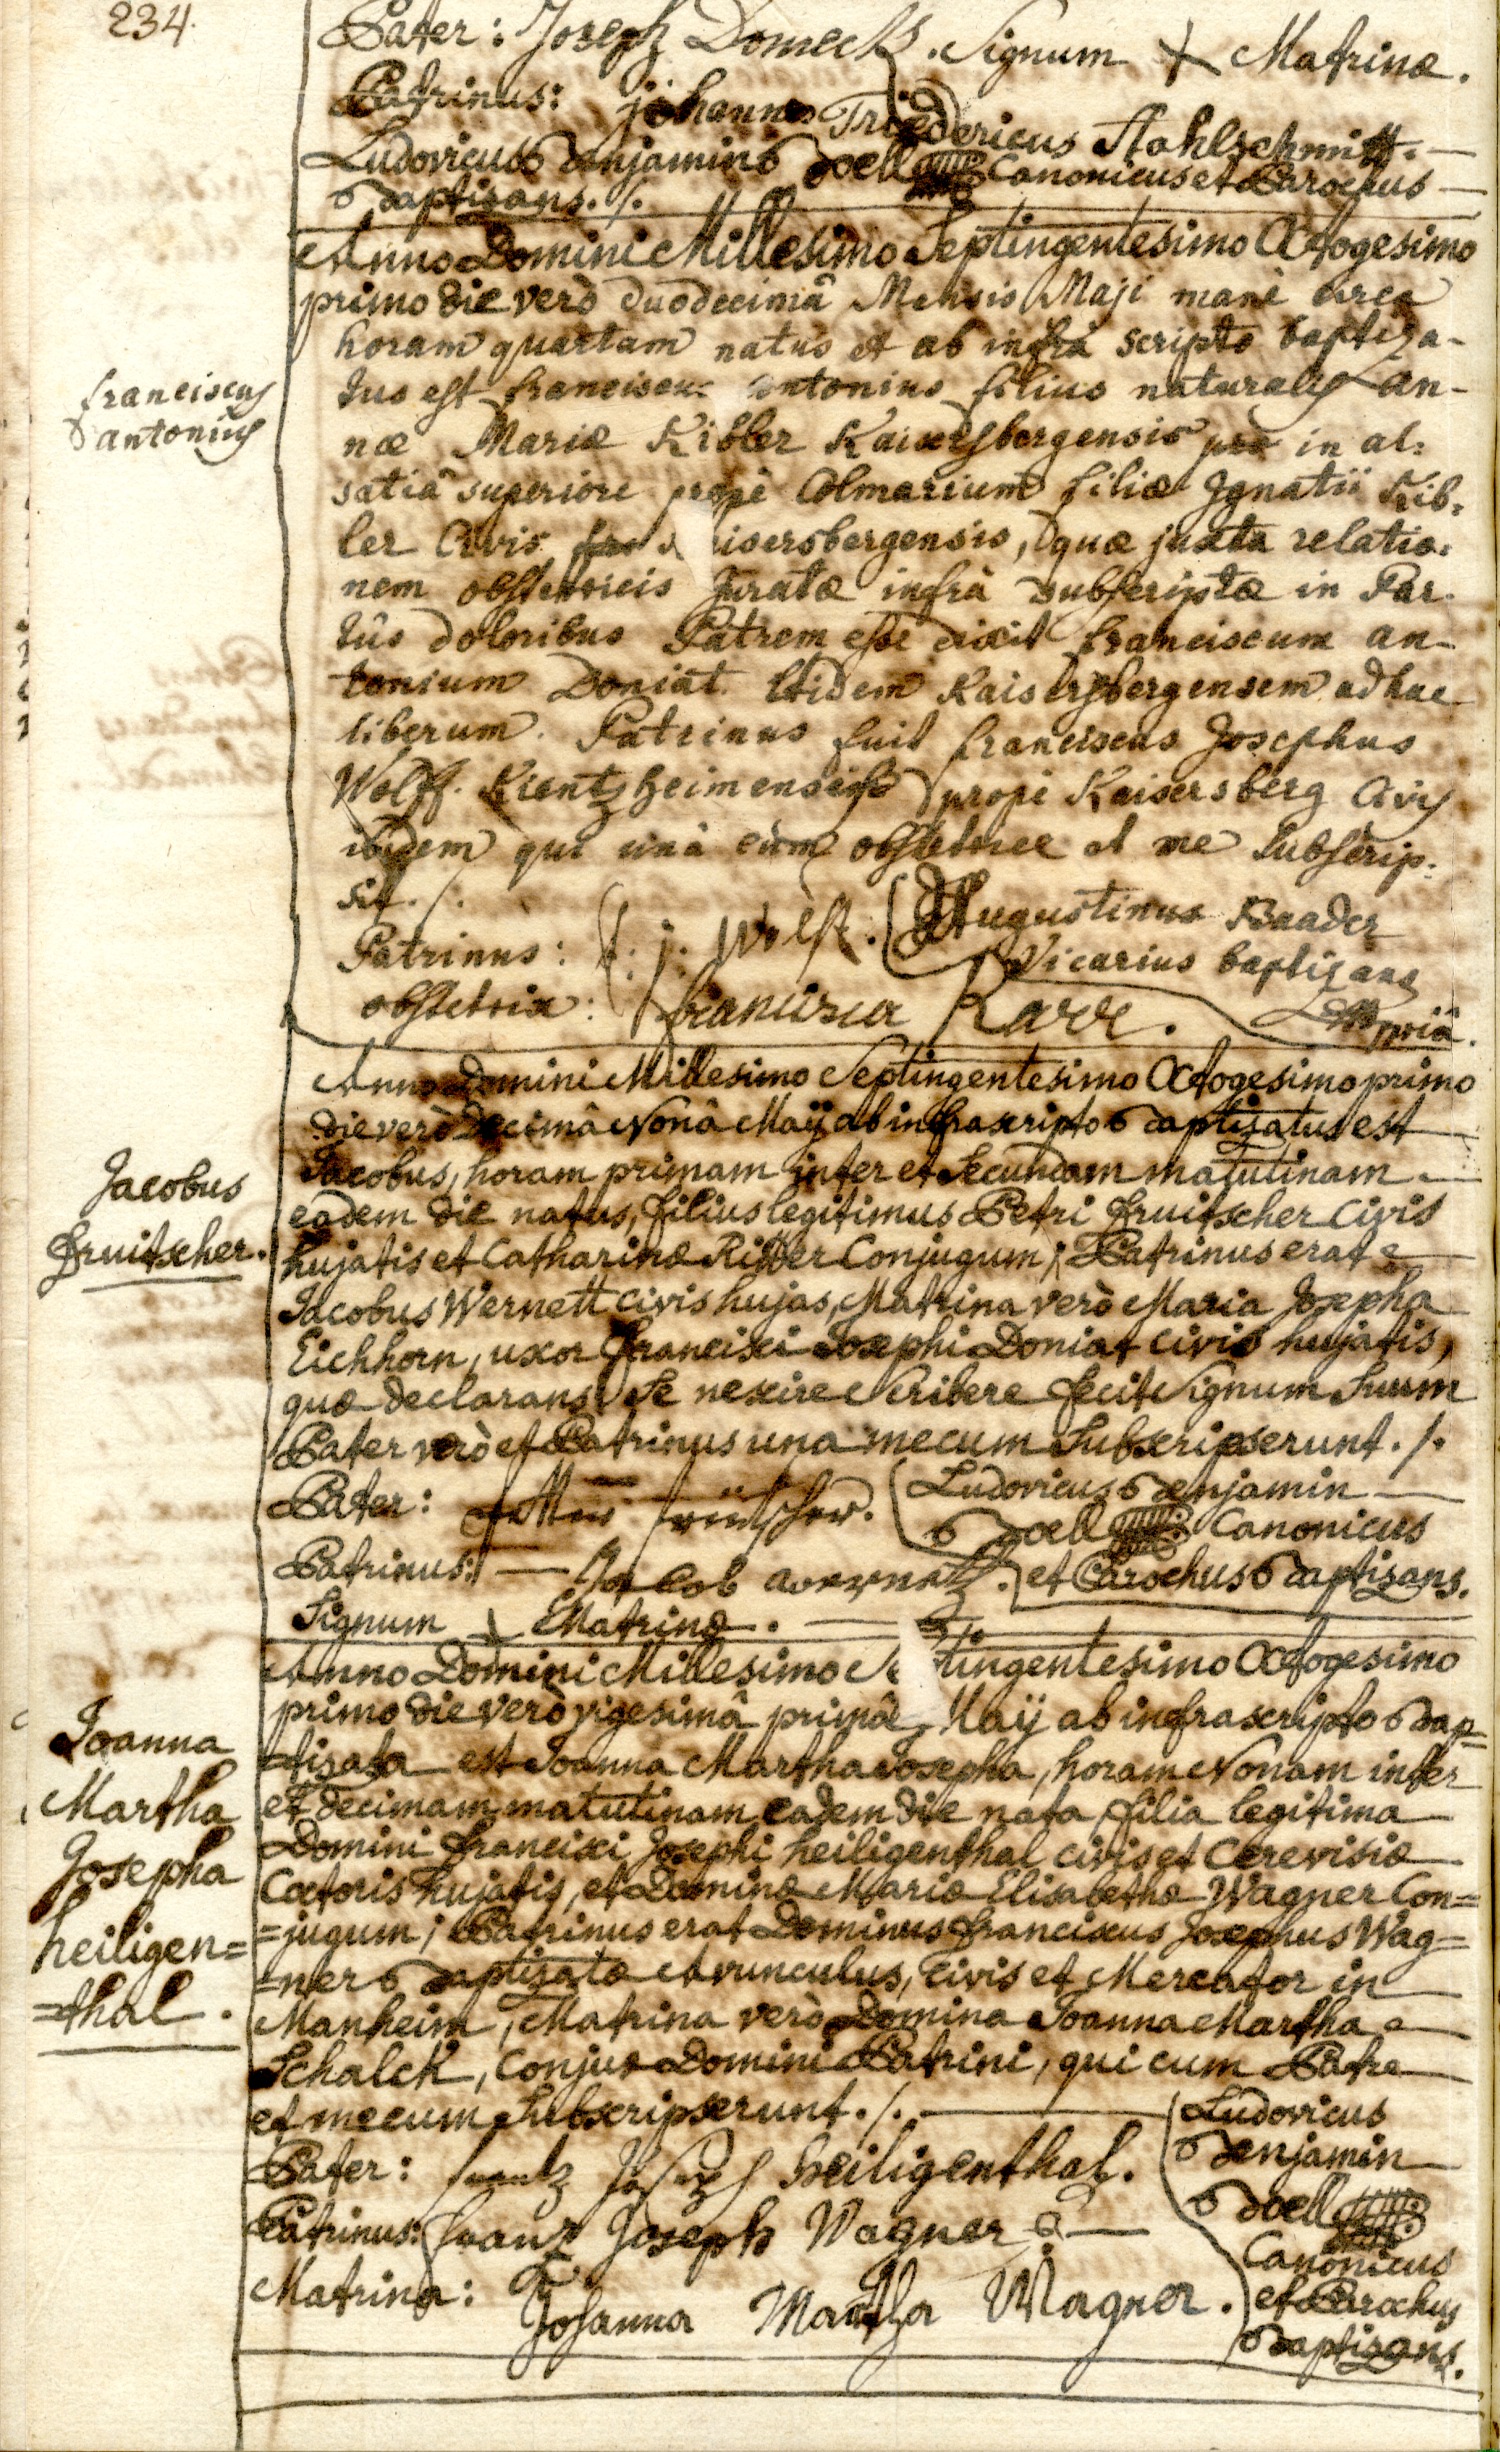 234.
Pater: Joseph Domeck. Signum + Matrinæ.
Patrinus: johannes Friedericus Stahlschmitt. —
Ludovicus Benjamin Boell Canonicus et Parochus —
Baptizans. /.
Anno Domini Millesimo Septingentesimo Octogesimo
primo die verò duodecimâ Mensis Maji manè circa
horam quartam natus et ab infrà scripto baptiza-
tus est franciscus antonius filius naturalis an-
næ Mariæ Kibler Kaisersbergensis in al:
satiâ superiore propè Colmarium filiæ Ignatii Kib:
ler Civis Kaisersbergensis, quæ juxta relatio:
nem obstetricis Juratæ infrà subscriptæ in Par-
tûs doloribus Patrem esse dixit franciscum an-
tonium Doniat itidem Kaisersbergensem adhuc
liberum. Patrinus fuit franciscus Josephus
Wolff Kientzheimensis propè Kaisersberg Civis
ibidem qui unâ cùm obstetrice et me subscrip:
sit. /.
franciscus
antonius
Patrinus: f. j. Wolff. Augustinus Baader
Vicarius baptizans
obstetrix: francisca Rave. mpriâ.
Anno Domini Millesimo Septingentesimo Octogesimo primo
die verò Decimâ Nonâ Maÿ ab infrascripto Baptizatus est
Jacobus, horam primam inter et Secundam matutinam —
eadem die natus, filius legitimus Petri fruitscher Civis
hujatis et Catharinæ Ritter Conjugum; Patrinus erat —
Jacobus Wernett civis hujas, Matrina verò Maria Josepha
Eichhorn, uxor Francisci Josephi Doniat civis hujatis,
quæ declarans Se nescire Scribere fecit Signum Suum
Pater verò et Patrinus una mecum Subscripserunt. /.
Jacobus
fruitscher.
Pater: fruitscher. Ludovicus Benjamin —
Boell Canonicus
Patrinus: — Jacob wernet. et Parochus Baptizans.
Signum + Matrinæ. —
Anno Domini Millesimo Septingentesimo Octogesimo
primo die verò vigesimâ primâ Maÿ ab infrascripto Bap=
tizata est Joanna Martha Josepha, horam Nonam inter
et decimam matutinam eadem die nata, filia legitima
Domini Francisci Josephi heiligenthal civis et Cerevisiæ
Coctoris hujatis, et Dominæ Mariæ Elisabethæ Wagner Con=
=jugum; Patrinus erat Dominus Franciscus Josephus Wag=
=ner Baptizatæ Avunculus, Civis et Mercator in
Manheim, Matrina verò Domina Joanna Martha —
Schalck, Conjux Domini Patrini, qui cum Patre —
et mecum Subscripserunt. /. —
Joanna
Martha
Josepha
heiligen=
=thal.
Pater: frantz Joseph heiligenthal.
Patrinus: franz Joseph Wagner —
Matrina: Johanna Martha Wagner.
Ludovicus
Benjamin
Boell
Canonicus
et Parochus
Baptizans.